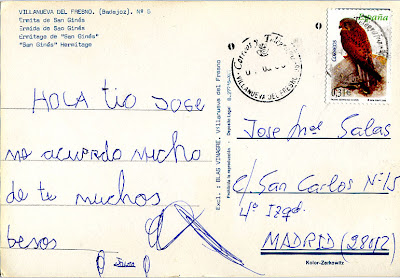 VILLANUEVA DEL FRESNO, (Badajoz), Nº 5
Ermita de San Ginés
Ermida de San Ginés
Ermitage de "San Ginés"
"San Ginés" Hermitage
HOLA tio JOSE
me acuerdo mucho
de te muchos
besos
Excl.: BLAS VINAGRE, Villanueva del Fresno
Prohibida la reproducción
Depósito Legal
Correos y
VILLANUEVA DEL FRESNO
España
CORREOS
0,31€
Jose Mª Salas
c/ San Carlos Nº 15
4º Izqd.
MADRID (28012)
Kolor-Zerkowitz